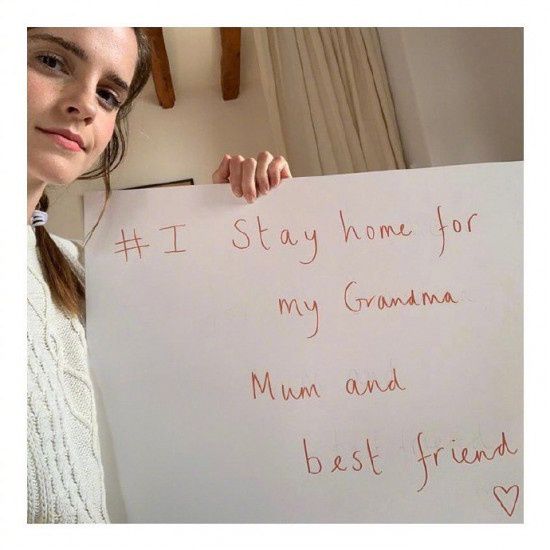 # I Stay home for
my Grandma
Mum and
best friend
♡